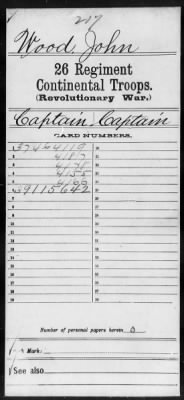 217
Wood, John
26 Regiment
Continental Troops.
(Revolutionary War.)
Captain Captain
CARD NUMBERS.
1 37464119
2 4187
3 4178
4 4155
5 4166
6 39115642
Number of personal papers herein 0
Mark:
See also